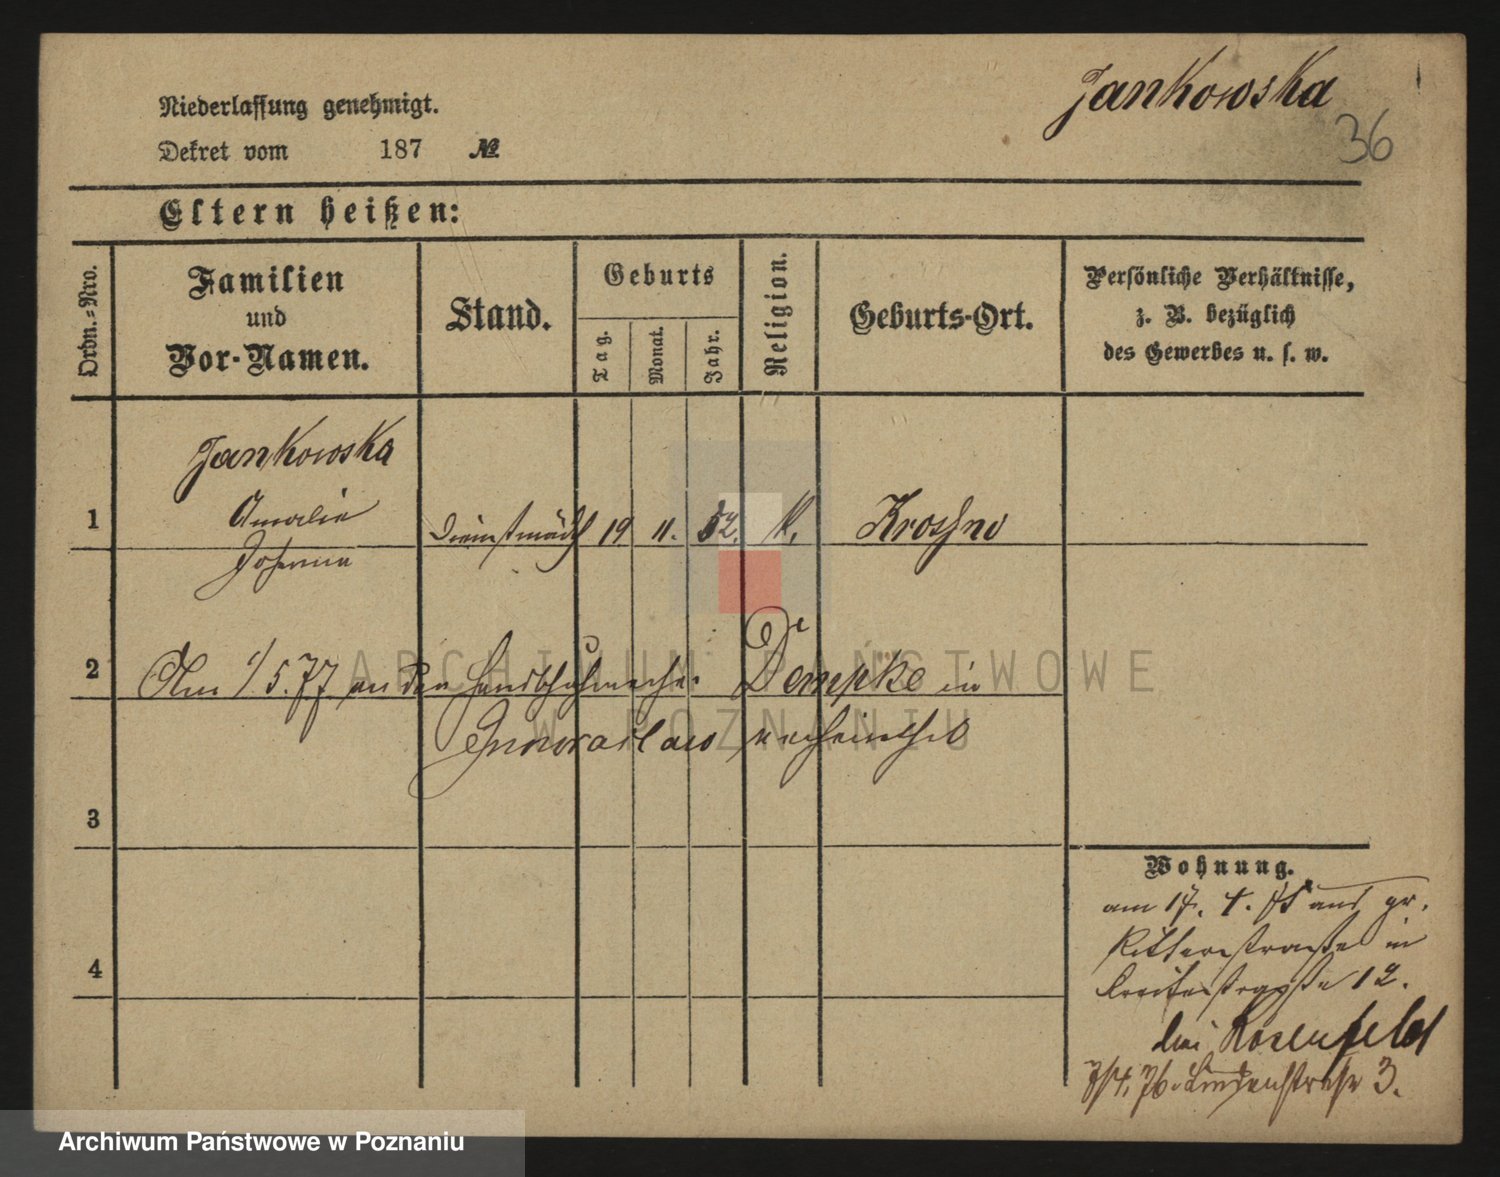 Jankowska
36
Niederlassung genehmigt.
Dekret vom 187 №
Eltern heißen:
Ordn.-Nro.
Familien
und
Vor-Namen.
Stand.
Geburts
Tag.
Monat.
Jahr.
Religion.
Geburts-Ort.
Persönliche Verhältnisse,
z. B. bezüglich
des Gewerbes u. s. w.
Jankowska
1 Amalie Dienstmädch 19 11. 52. k. Krossno
Johanna
2 Am 1/5.77 an den Handschuhmacher Dempke in
Inowraclaw verheirathet
3
4
Wohnung.
am 17. 4. aus gr.
Ritterstraße in
Breitestraße 12.
bei Rosenfeld
3/4. 76. Lindenstraße 3.
ARCHIWUM PAŃSTWOWE
W POZNANIU
Archiwum Państwowe w Poznaniu